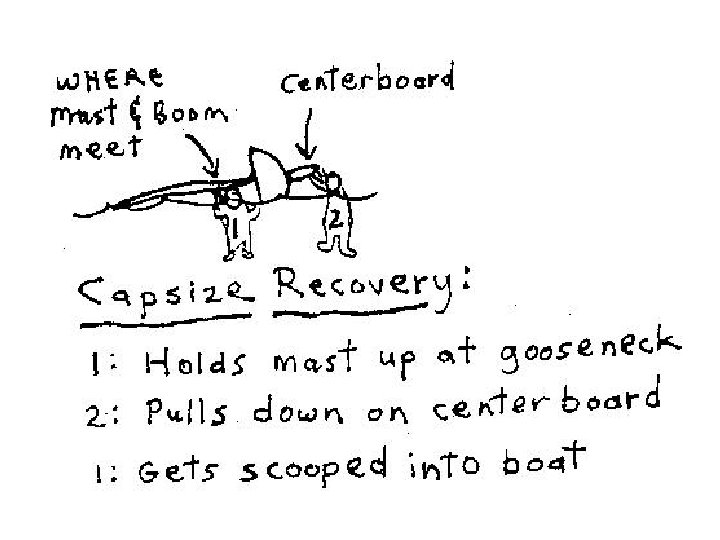 WHERE
mast & Boom
meet
centerboard
1
2
Capsize Recovery:
1: Holds mast up at gooseneck
2: Pulls down on centerboard
1: Gets scooped into boat